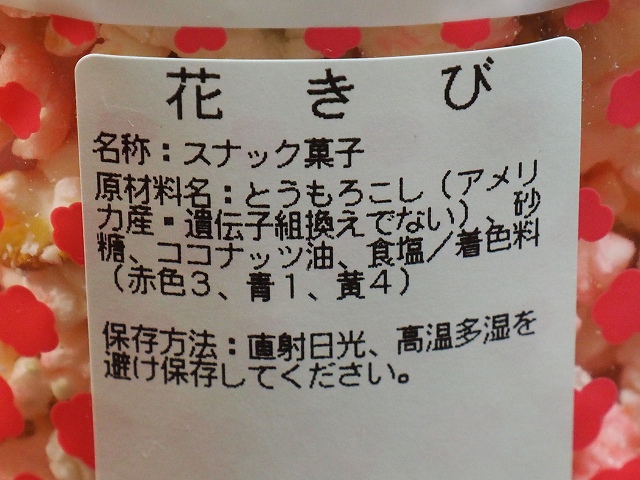 花きび
名称：スナック菓子
原材料名：とうもろこし（アメリ
カ産・遺伝子組換えでない）、砂
糖、ココナッツ油、食塩／着色料
（赤色３、青１、黄４）
保存方法：直射日光、高温多湿を
避け保存してください。